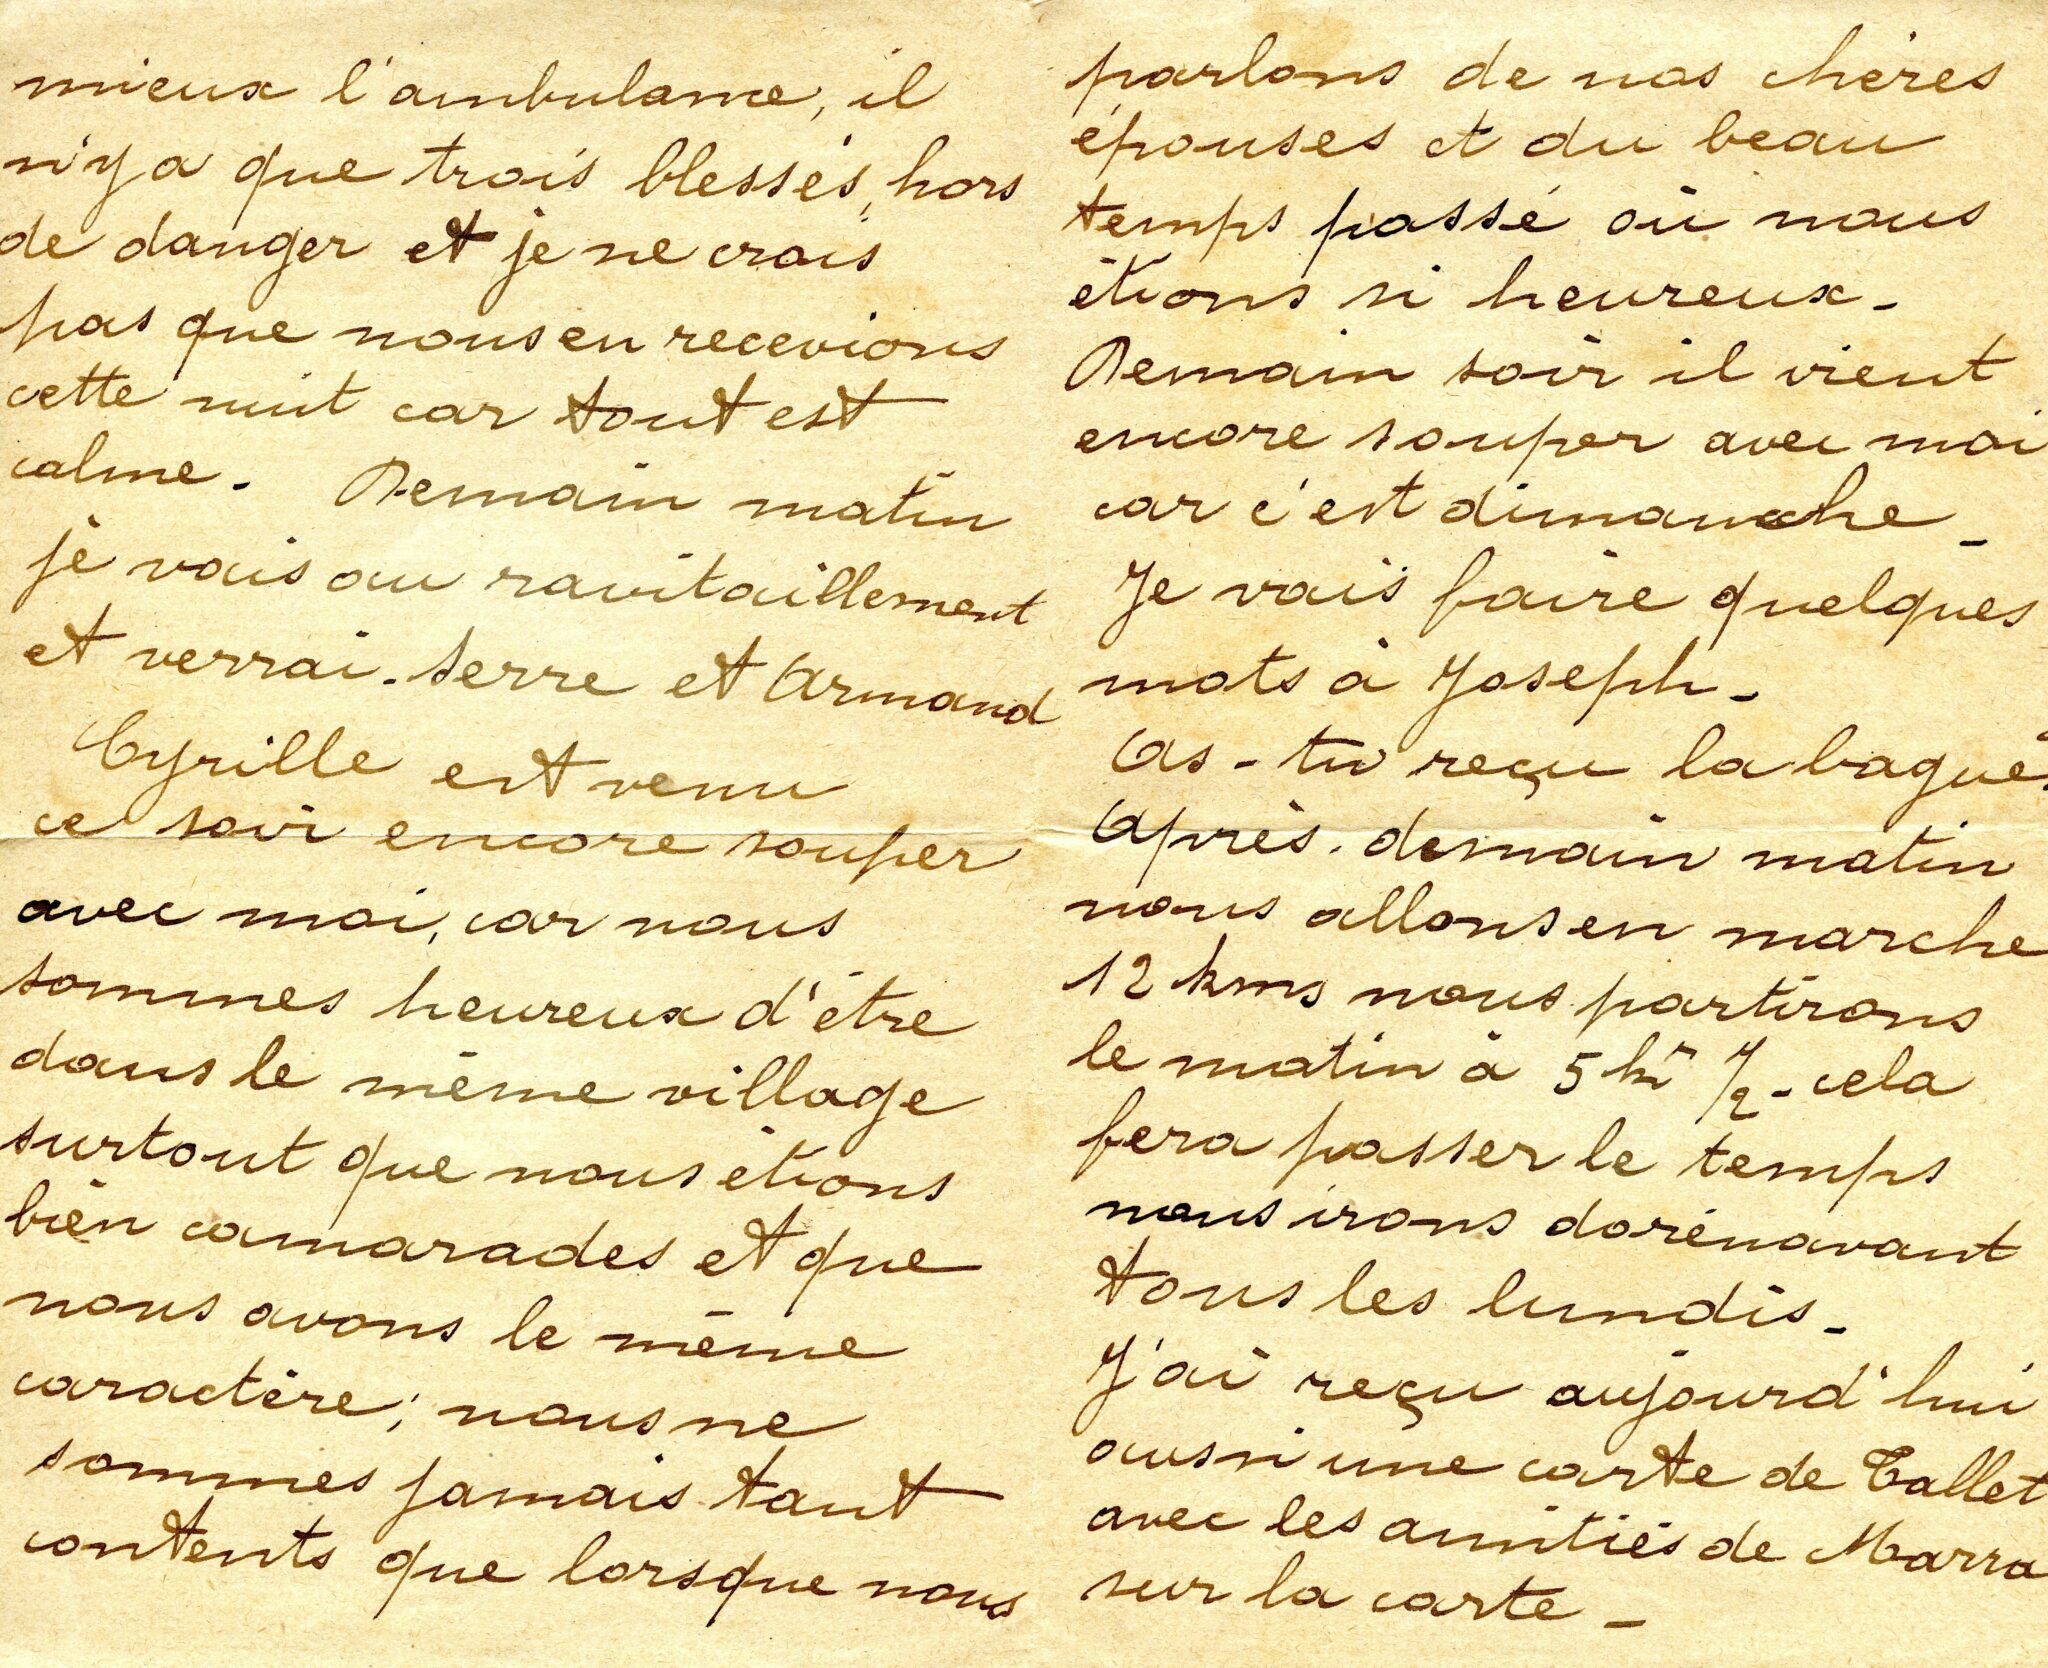 mieux l'ambulance, il
n'y a que trois blessés, hors
de danger et je ne crois
pas que nous en recevions
cette nuit car tout est
calme. Demain matin
je vais au ravitaillement
et verrai. Serre et Armand
Cyrille est venu
ce soir encore souper
avec moi, car nous
sommes heureux d'être
dans le même village
surtout que nous étions
bien camarades et que
nous avons le même
caractère; nous ne
sommes jamais tant
contents que lorsque nous
parlons de nos chères
épouses et du beau
temps passé où nous
étions si heureux.
Demain soir il vient
encore souper avec moi
car c'est dimanche.
Je vais faire quelques
mots à Joseph.
As-tu reçu la bague?
Après-demain matin
nous allons en marche
12 kms nous partirons
le matin à 5 hr 1/2. cela
fera passer le temps
nous irons dorénavant
tous les lundis.
J'ai reçu aujourd'hui
aussi une carte de Tallet
avec les amitiés de Marra
sur la carte.